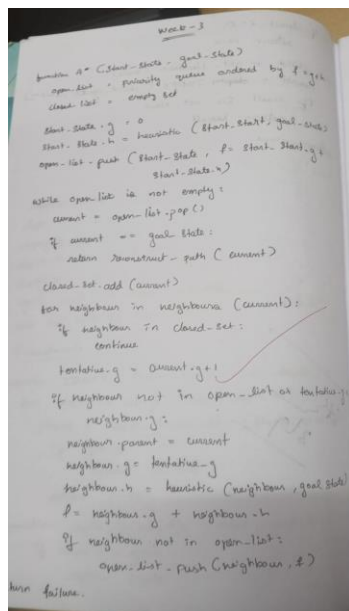 Week-3
function A* (start-state, goal-state)
open-list = priority queue ordered by f = g+h
closed list = empty set
start-state.g = 0
start-state.h = heuristic (start-start, goal-state)
open-list-push (start-state, f = start-start.g +
start-state.
while open-list is not empty:
current = open-list.pop()
if current == goal state:
return reconstruct-path (current)
closed-set.add (current)
for neighbour in neighbours (current):
if neighbour in closed-set:
continue
tentative-g = current.g+1
if neighbour not in open-list or tentative-g
neighbour.g:
neighbour.parent = current
neighbour.g = tentative-g
neighbour.h = heuristic (neighbour, goal state)
f = neighbour.g + neighbour.h
if neighbour not in open-list:
open-list-push (neighbour, f)
turn failure.